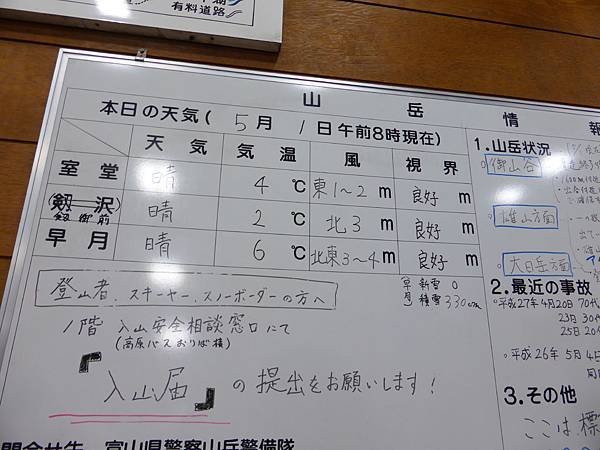 有料道路
山岳情報
本日の天気(5月1日午前8時現在)
天気 気温 風 視界
室堂 晴 4℃ 東1~2m 良好 m
(剱沢) 晴 2℃ 北3m 良好 m
剱御前
早月 晴 6℃ 北東3~4m 良好 m
早月 新雪 0
積雪 330cm
登山者、スキーヤー、スノーボーダーの方へ
1階 入山安全相談窓口にて
(高原バスおりば横)
『入山届』の提出をお願いします!
富山県警察山岳警備隊
1.山岳状況
御山谷
雄山方面
大日岳方面
2.最近の事故
平成27年4月20日 70代
23日 30代
25日 20
平成26年5月4日
3.その他
ここは標